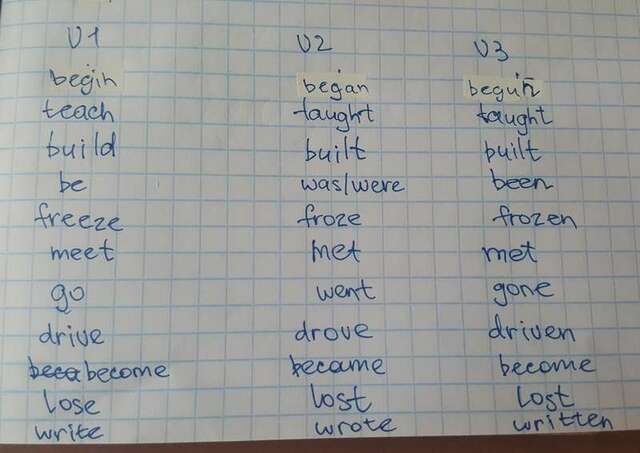 V1 V2 V3
begin began begun
teach taught taught
build built built
be was/were been
freeze froze frozen
meet met met
go went gone
drive drove driven
beca become became become
lose lost lost
write wrote written